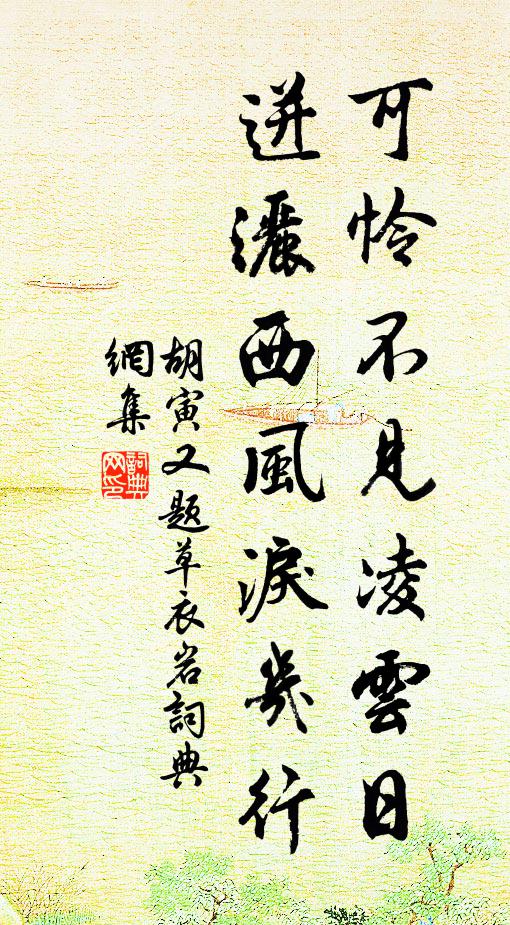 可怜不見凌雲日
迸灑西風淚幾行
胡寅又题草衣岩詞典
網集
詞典
网印